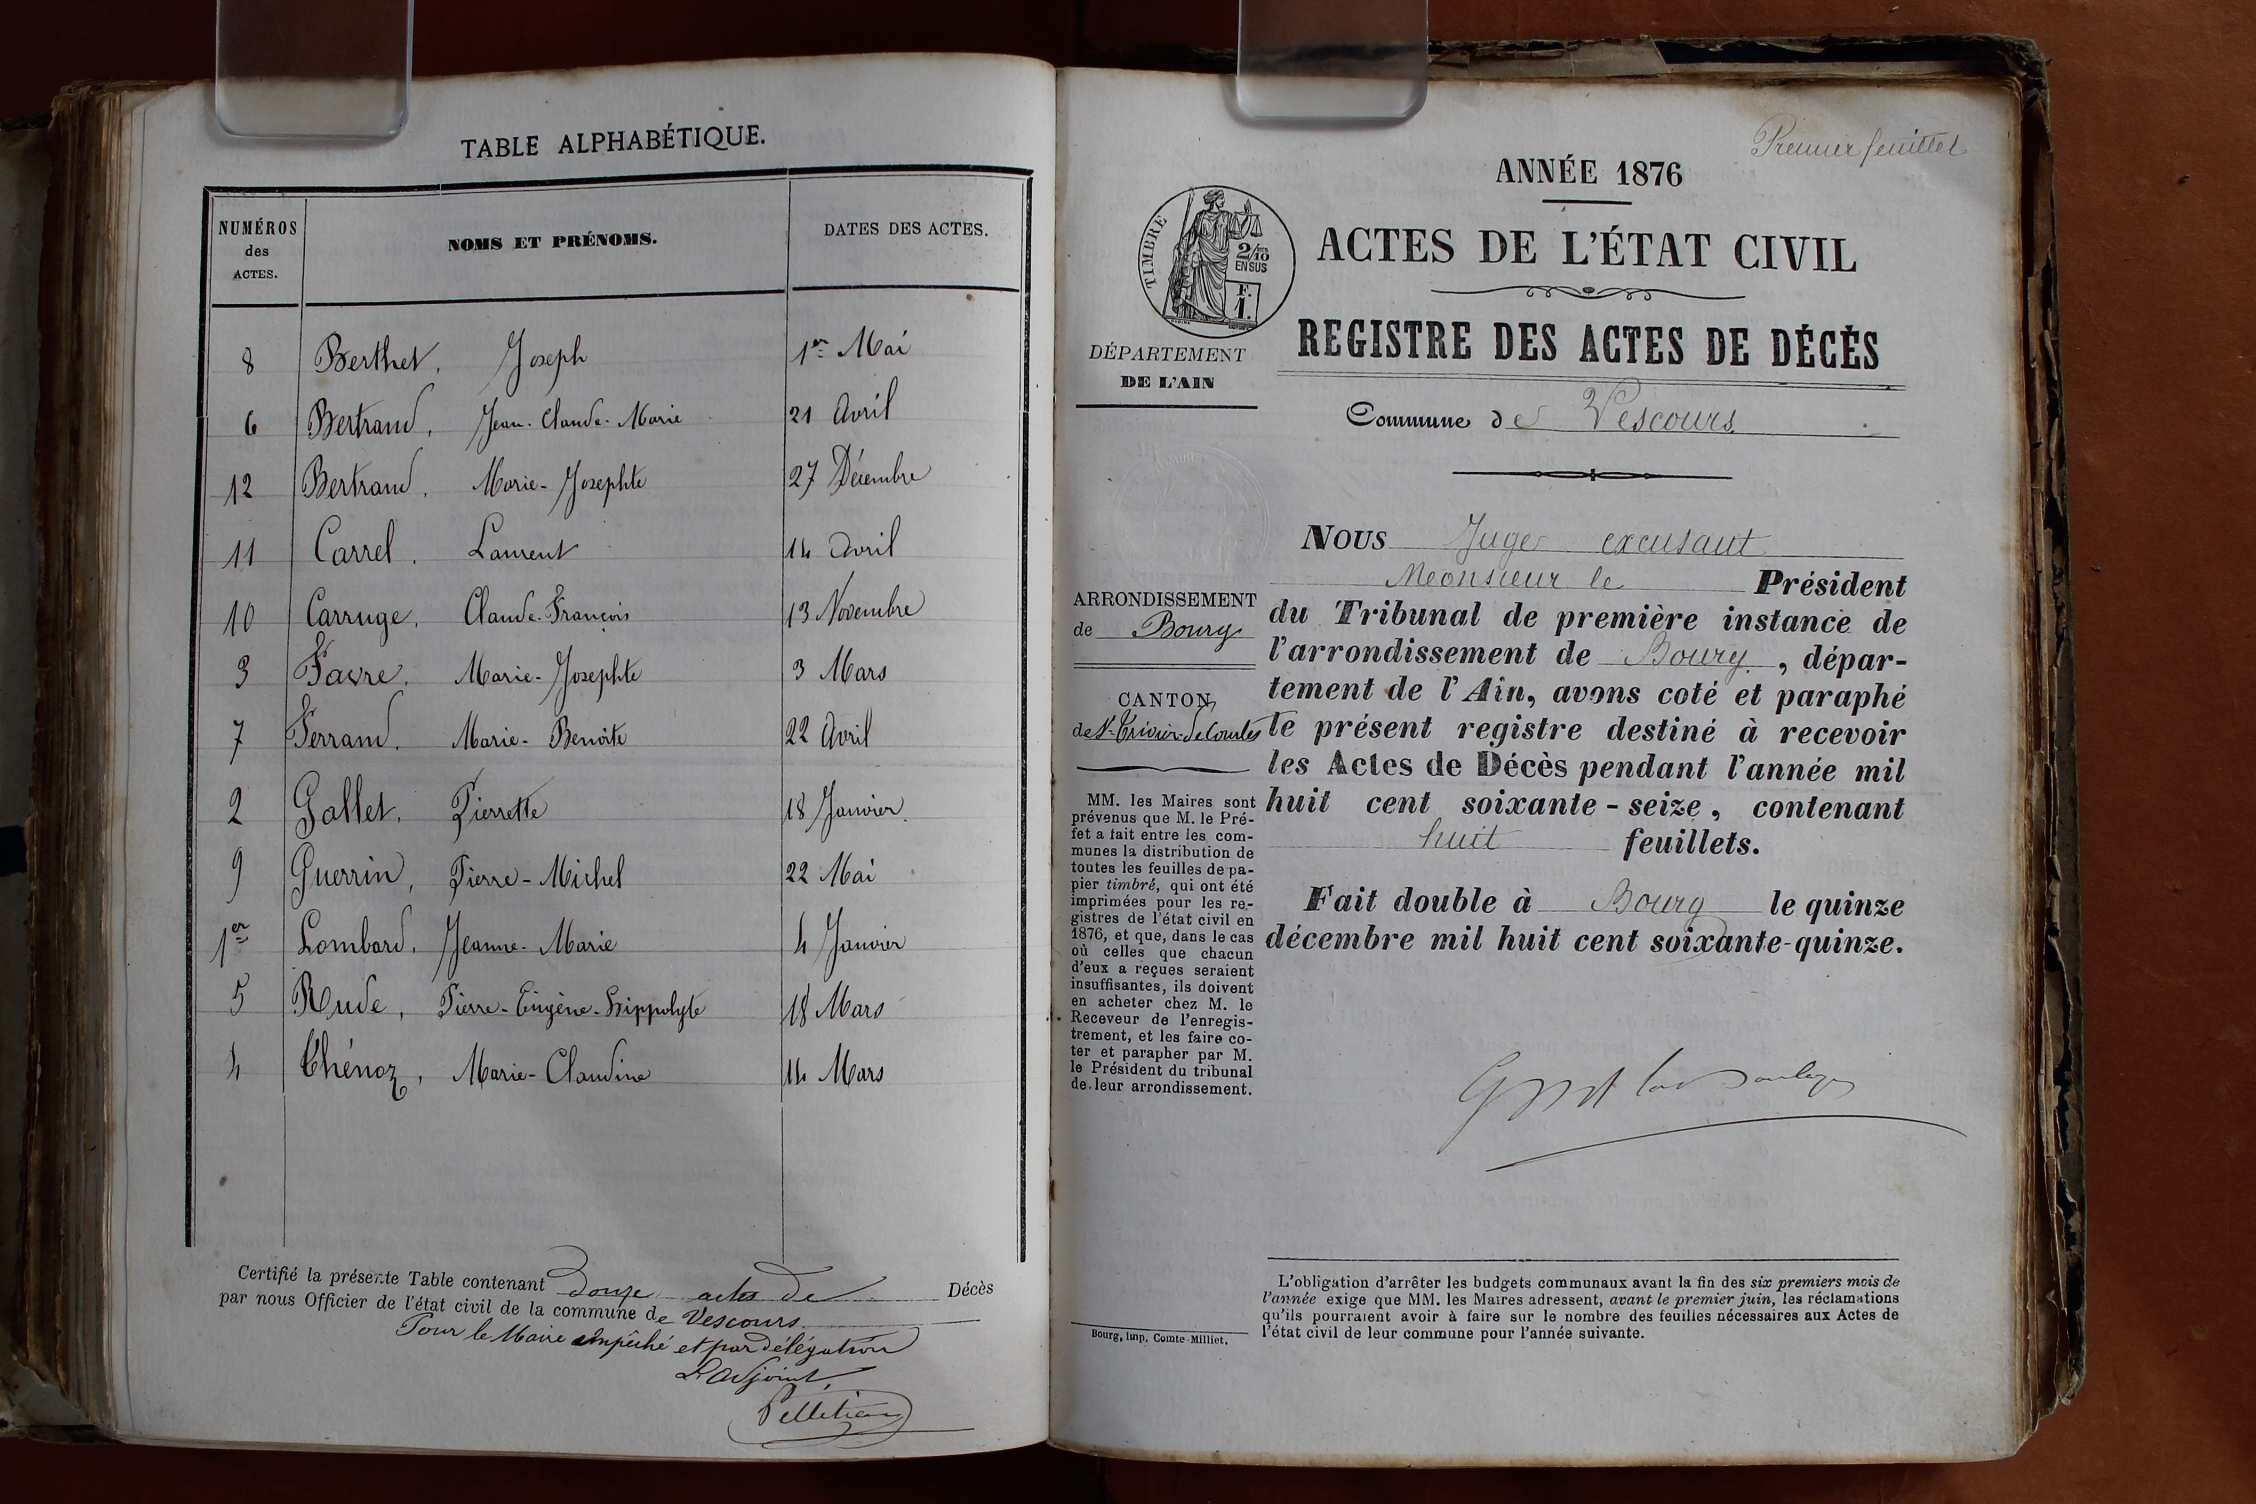 TABLE ALPHABÉTIQUE.
NUMÉROS
des
ACTES.
NOMS ET PRÉNOMS.
DATES DES ACTES.
8 Berthet, Joseph 1er Mai
6 Bertrand, Jean-Claude-Marie 21 Avril
12 Bertrand, Marie-Josephte 27 Décembre
11 Carrel, Laurent 14 Avril
10 Carruge, Claude-François 13 Novembre
3 Favre, Marie-Josephte 3 Mars
7 Ferrand, Marie-Benoite 22 Avril
2 Gallet, Pierrette 18 Janvier
9 Guerrin, Pierre-Michel 22 Mai
1er Lombard, Jeanne-Marie 4 Janvier
5 Rude, Pierre-Eugène-Hippolyte 18 Mars
4 Chénoz, Marie-Claudine 14 Mars
Certifié la présente Table contenant douze actes de Décès
par nous Officier de l'état civil de la commune de Vescours
Pour le Maire empêché et par délégation
L'adjoint,
Pelletier
Premier feuillet
ANNÉE 1876
TIMBRE
2/10
EN SUS
F.
1.
ACTES DE L'ÉTAT CIVIL
REGISTRE DES ACTES DE DÉCÈS
DÉPARTEMENT
DE L'AIN
Commune de Vescours
ARRONDISSEMENT
de Bourg
CANTON
de St-Trivier-de-Courtes
MM. les Maires sont
prévenus que M. le Pré-
fet a fait entre les com-
munes la distribution de
toutes les feuilles de pa-
pier timbré, qui ont été
imprimées pour les re-
gistres de l'état civil en
1876, et que, dans le cas
où celles que chacun
d'eux a reçues seraient
insuffisantes, ils doivent
en acheter chez M. le
Receveur de l'enregis-
trement, et les faire co-
ter et parapher par M.
le Président du tribunal
de leur arrondissement.
Bourg, imp. Comte-Milliet.
NOUS Juge excusant
Monsieur le Président
du Tribunal de première instance de
l'arrondissement de Bourg, dépar-
tement de l'Ain, avons coté et paraphé
le présent registre destiné à recevoir
les Actes de Décès pendant l'année mil
huit cent soixante-seize, contenant
huit feuillets.
Fait double à Bourg le quinze
décembre mil huit cent soixante-quinze.
L'obligation d'arrêter les budgets communaux avant la fin des six premiers mois de
l'année exige que MM. les Maires adressent, avant le premier juin, les réclamations
qu'ils pourraient avoir à faire sur le nombre des feuilles nécessaires aux Actes de
l'état civil de leur commune pour l'année suivante.